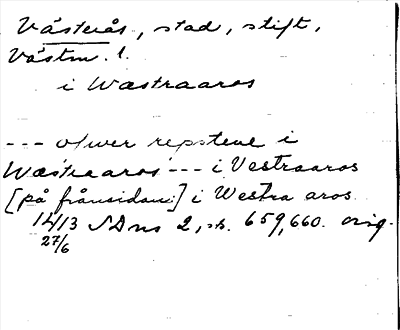 Västerås, stad, stift,
Västm. l.
i Wæstraaros
--- ofwer repstene i
Wæstraaros --- i Vestraaros
[på frånsidan:] i Westra aros
14/13 SD ns 2, s. 659, 660. orig.
27/6